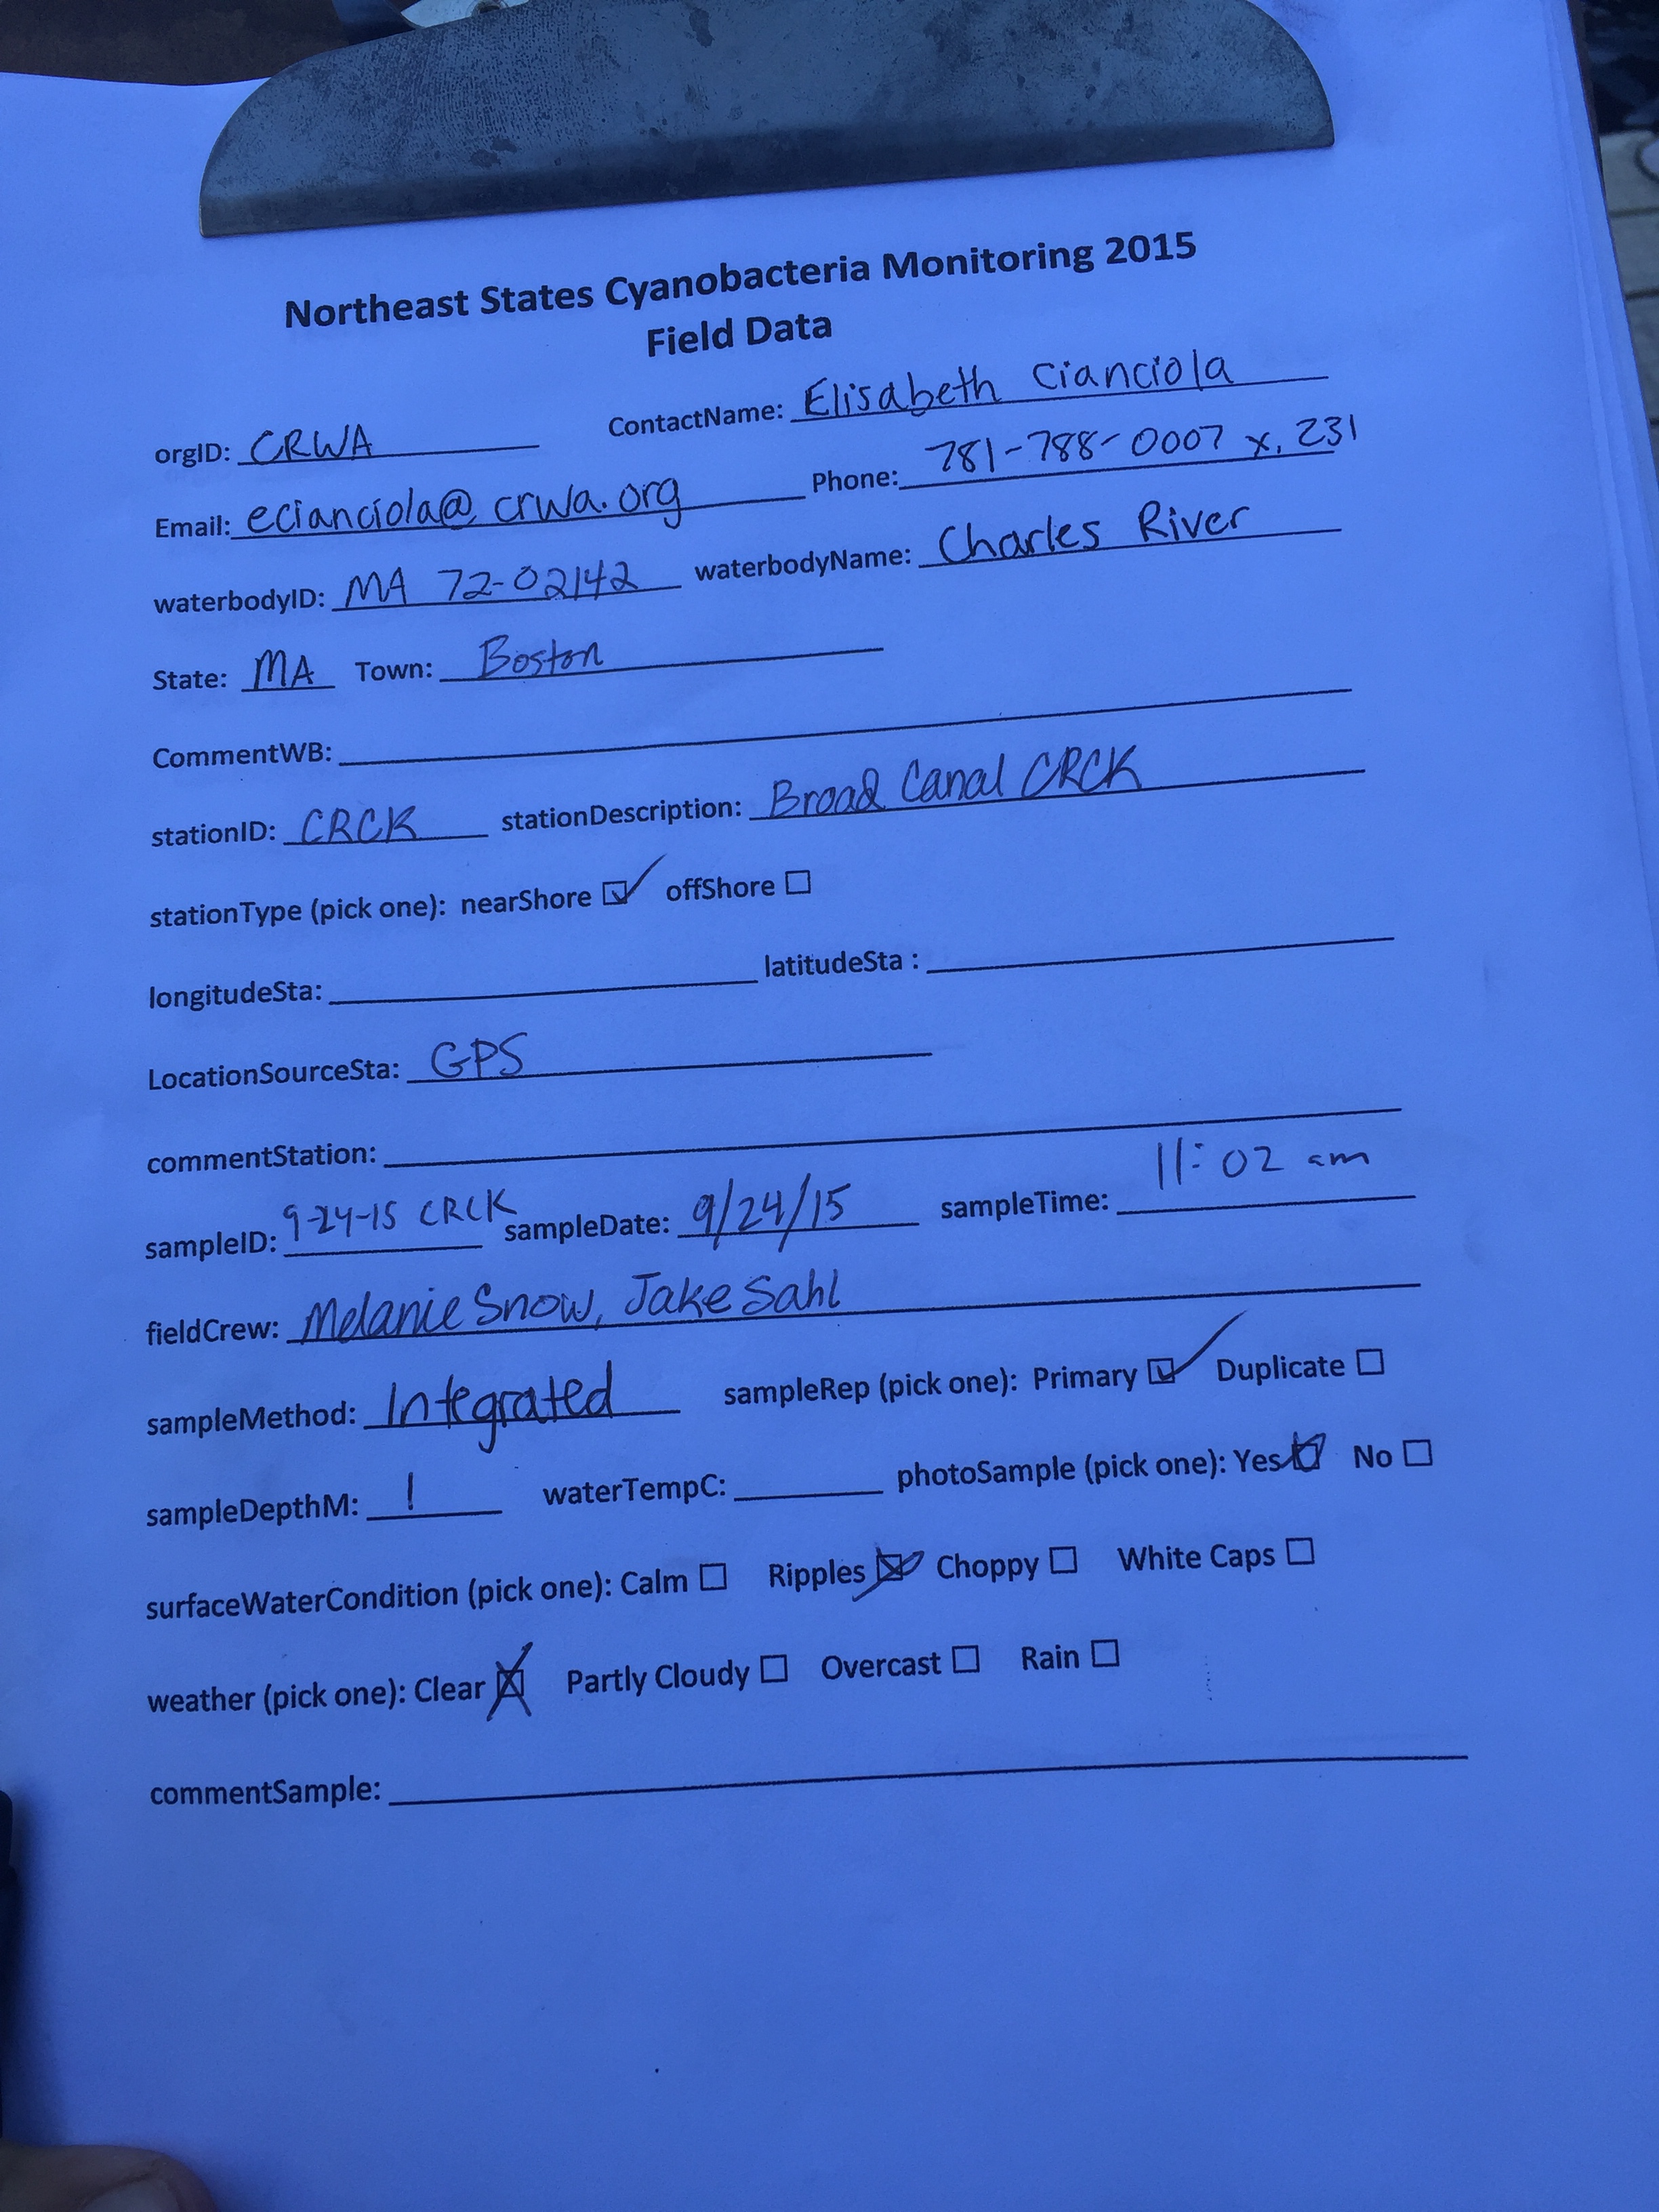 Northeast States Cyanobacteria Monitoring 2015
Field Data
orgID: CRWA ContactName: Elisabeth Cianciola
Email: ecianciola@crwa.org Phone: 781-788-0007 x. 231
waterbodyID: MA 72-02142 waterbodyName: Charles River
State: MA Town: Boston
CommentWB:
stationID: CRCK stationDescription: Broad Canal CRCK
stationType (pick one): nearShore ☑ offShore ☐
longitudeSta: latitudeSta :
LocationSourceSta: GPS
commentStation:
sampleID: 9-24-15 CRCK sampleDate: 9/24/15 sampleTime: 11:02 am
fieldCrew: Melanie Snow, Jake Sahl
sampleMethod: Integrated sampleRep (pick one): Primary ☑ Duplicate ☐
sampleDepthM: 1 waterTempC: photoSample (pick one): Yes ☑ No ☐
surfaceWaterCondition (pick one): Calm ☐ Ripples ☒ Choppy ☐ White Caps ☐
weather (pick one): Clear ☒ Partly Cloudy ☐ Overcast ☐ Rain ☐
commentSample: